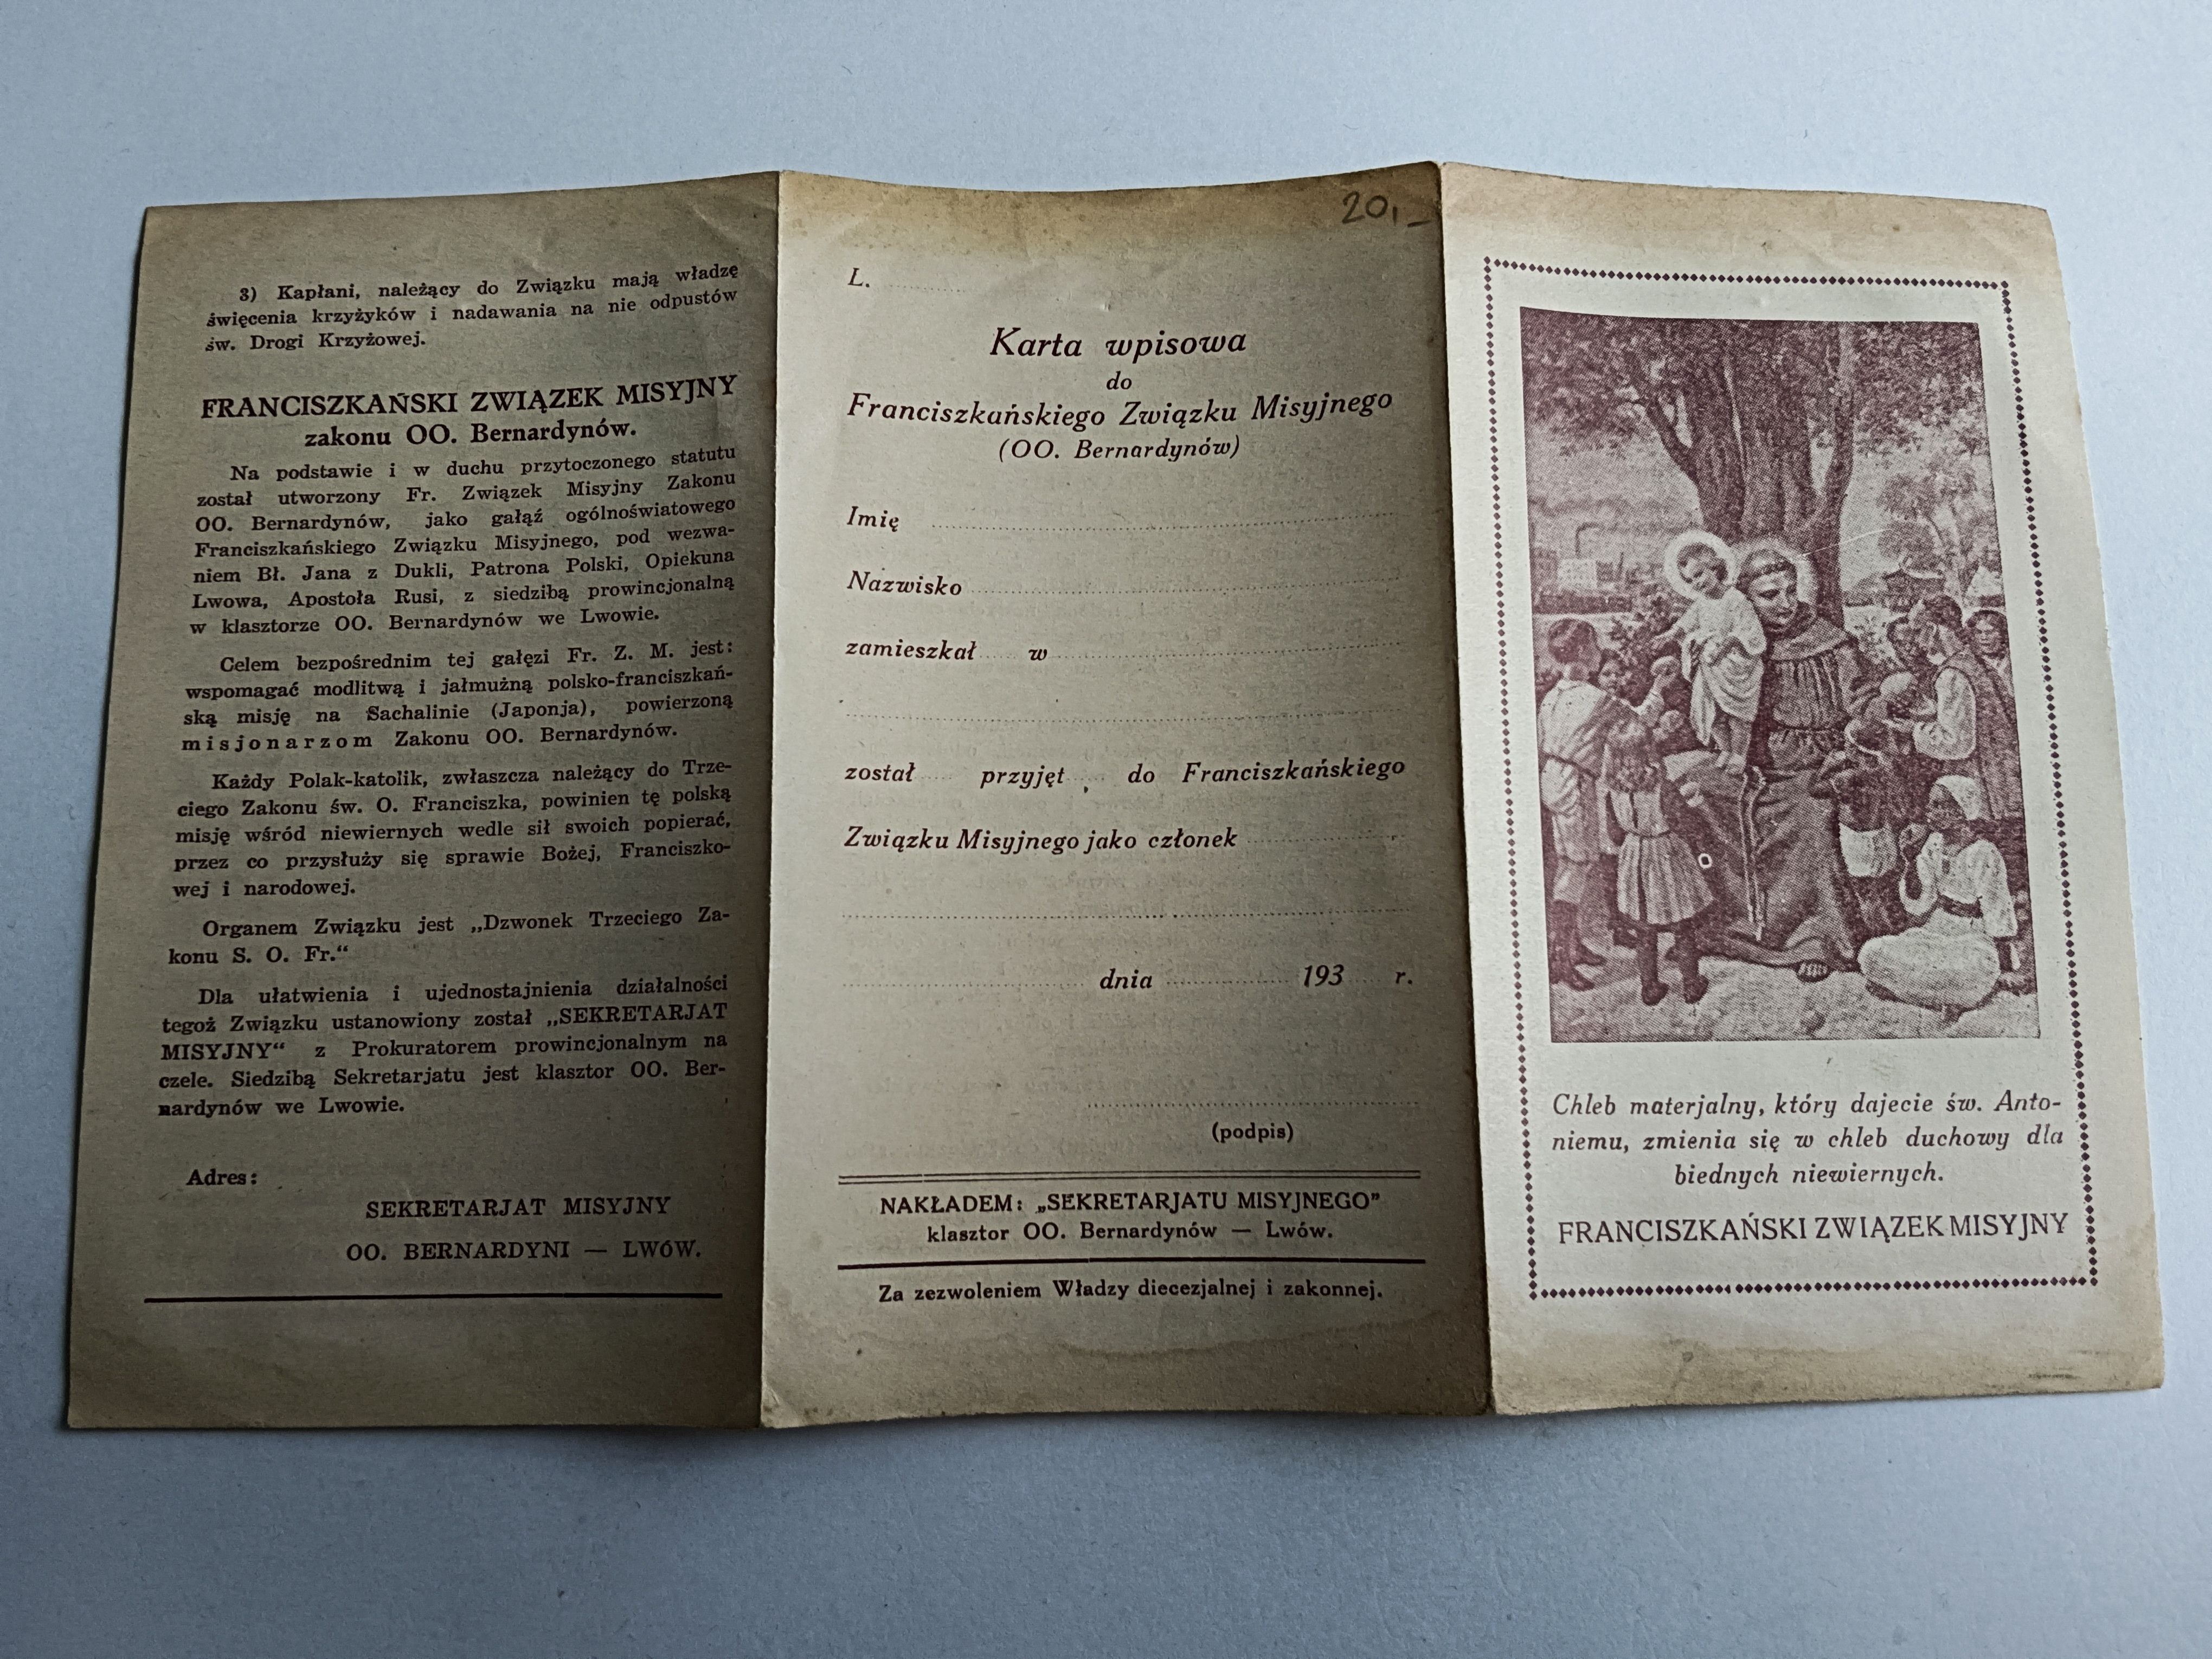 3) Kapłani, należący do Związku mają władzę
święcenia krzyżyków i nadawania na nie odpustów
św. Drogi Krzyżowej.
FRANCISZKAŃSKI ZWIĄZEK MISYJNY
zakonu OO. Bernardynów.
Na podstawie i w duchu przytoczonego statutu
został utworzony Fr. Związek Misyjny Zakonu
OO. Bernardynów, jako gałąź ogólnoświatowego
Franciszkańskiego Związku Misyjnego, pod wezwa-
niem Bł. Jana z Dukli, Patrona Polski, Opiekuna
Lwowa, Apostoła Rusi, z siedzibą prowincjonalną
w klasztorze OO. Bernardynów we Lwowie.
Celem bezpośrednim tej gałęzi Fr. Z. M. jest:
wspomagać modlitwą i jałmużną polsko-franciszkań-
ską misję na Sachalinie (Japonja), powierzoną
misjonarzom Zakonu OO. Bernardynów.
Każdy Polak-katolik, zwłaszcza należący do Trze-
ciego Zakonu św. O. Franciszka, powinien tę polską
misję wśród niewiernych wedle sił swoich popierać,
przez co przysłuży się sprawie Bożej, Franciszko-
wej i narodowej.
Organem Związku jest „Dzwonek Trzeciego Za-
konu S. O. Fr.“
Dla ułatwienia i ujednostajnienia działalności
tegoż Związku ustanowiony został „SEKRETARJAT
MISYJNY“ z Prokuratorem prowincjonalnym na
czele. Siedzibą Sekretarjatu jest klasztor OO. Ber-
nardynów we Lwowie.
Adres:
SEKRETARJAT MISYJNY
OO. BERNARDYNI — LWÓW.
20,-
L.
Karta wpisowa
do
Franciszkańskiego Związku Misyjnego
(OO. Bernardynów)
Imię
Nazwisko
zamieszkał w
został przyjęt do Franciszkańskiego
Związku Misyjnego jako członek
dnia 193 r.
(podpis)
NAKŁADEM: „SEKRETARJATU MISYJNEGO”
klasztor OO. Bernardynów — Lwów.
Za zezwoleniem Władzy diecezjalnej i zakonnej.
Chleb materjalny, który dajecie św. Anto-
niemu, zmienia się w chleb duchowy dla
biednych niewiernych.
FRANCISZKAŃSKI ZWIĄZEK MISYJNY